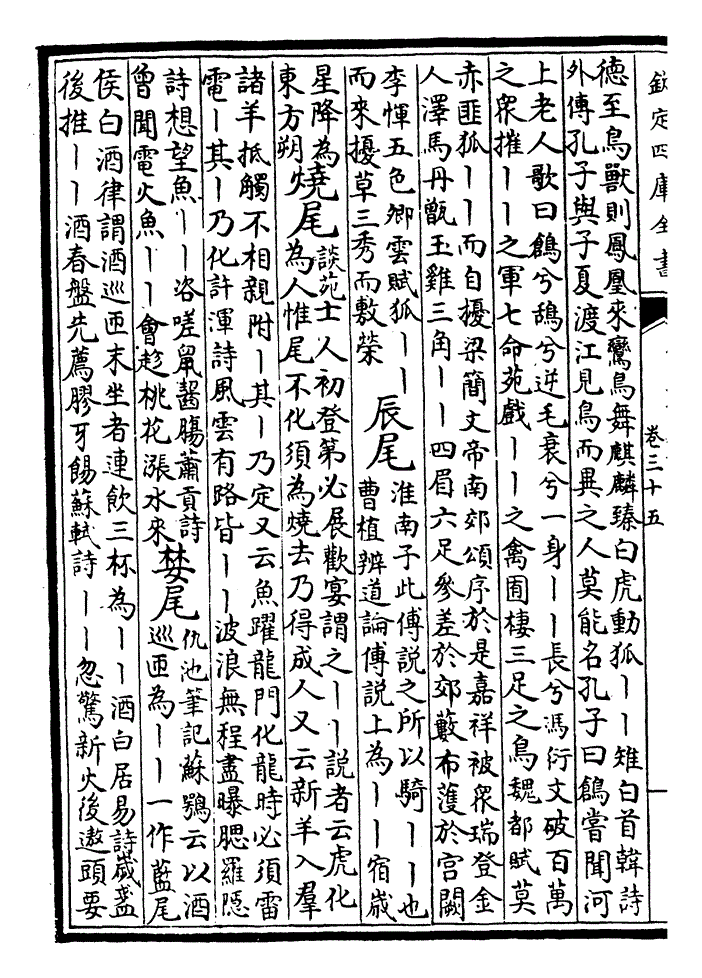 欽定四庫全書
卷三十五
德至鳥獸則鳳凰來鸞鳥舞麒麟臻白虎動狐丨丨雉白首韓詩
外傳孔子與子夏渡江見鳥而異之人莫能名孔子曰鶬嘗聞河
上老人歌曰鶬兮鴰兮逆毛衰兮一身丨丨長兮馮衍文破百萬
之衆摧丨丨之軍七命苑戲丨丨之禽囿棲三足之鳥魏都賦莫
赤匪狐丨丨而自擾梁簡文帝南郊頌序於是嘉祥被衆瑞登金
人澤馬丹甑玉雞三角丨丨四眉六足參差於郊藪布濩於宫闕
李惲五色卿雲賦狐丨丨
而來擾草三秀而敷榮
辰尾
淮南子此傅説之所以騎丨丨也
曹植辨道論傅説上為丨丨宿歲
星降為
東方朔
燒尾
談苑士人初登第必展歡宴謂之丨丨説者云虎化
為人惟尾不化須為燒去乃得成人又云新羊入羣
諸羊抵觸不相親附丨其丨乃定又云魚躍龍門化龍時必須雷
電丨其丨乃化許渾詩風雲有路皆丨丨波浪無程盡曝腮羅隱
詩想望魚丨丨咨嗟鼠齧腸蕭貢詩
曾聞電火魚丨丨會趂桃花漲水來
婪尾
仇池筆記蘇鶚云以酒
巡匝為丨丨一作藍尾
侯白酒律謂酒巡匝末坐者連飲三杯為丨丨酒白居易詩歲盞
後推丨丨酒春盤先薦膠牙餳蘇軾詩丨丨忽驚新火後遨頭要